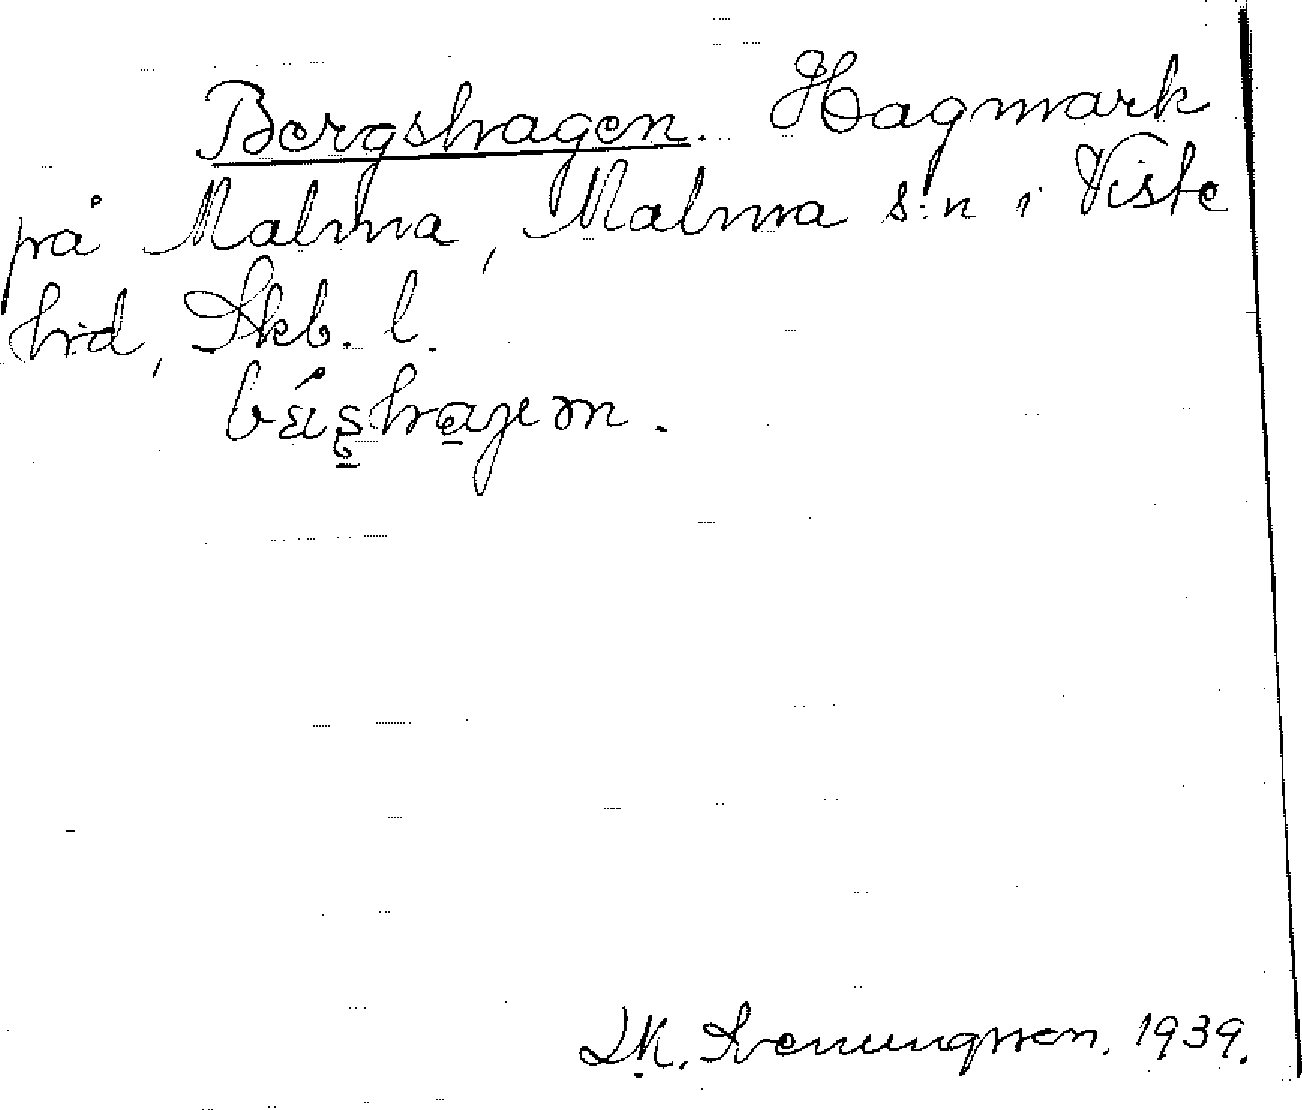 Bergshagen. Hagmark
på Malma, Malma s:n i Viste
hd, Skb. l.
Svenungsson. 1939.